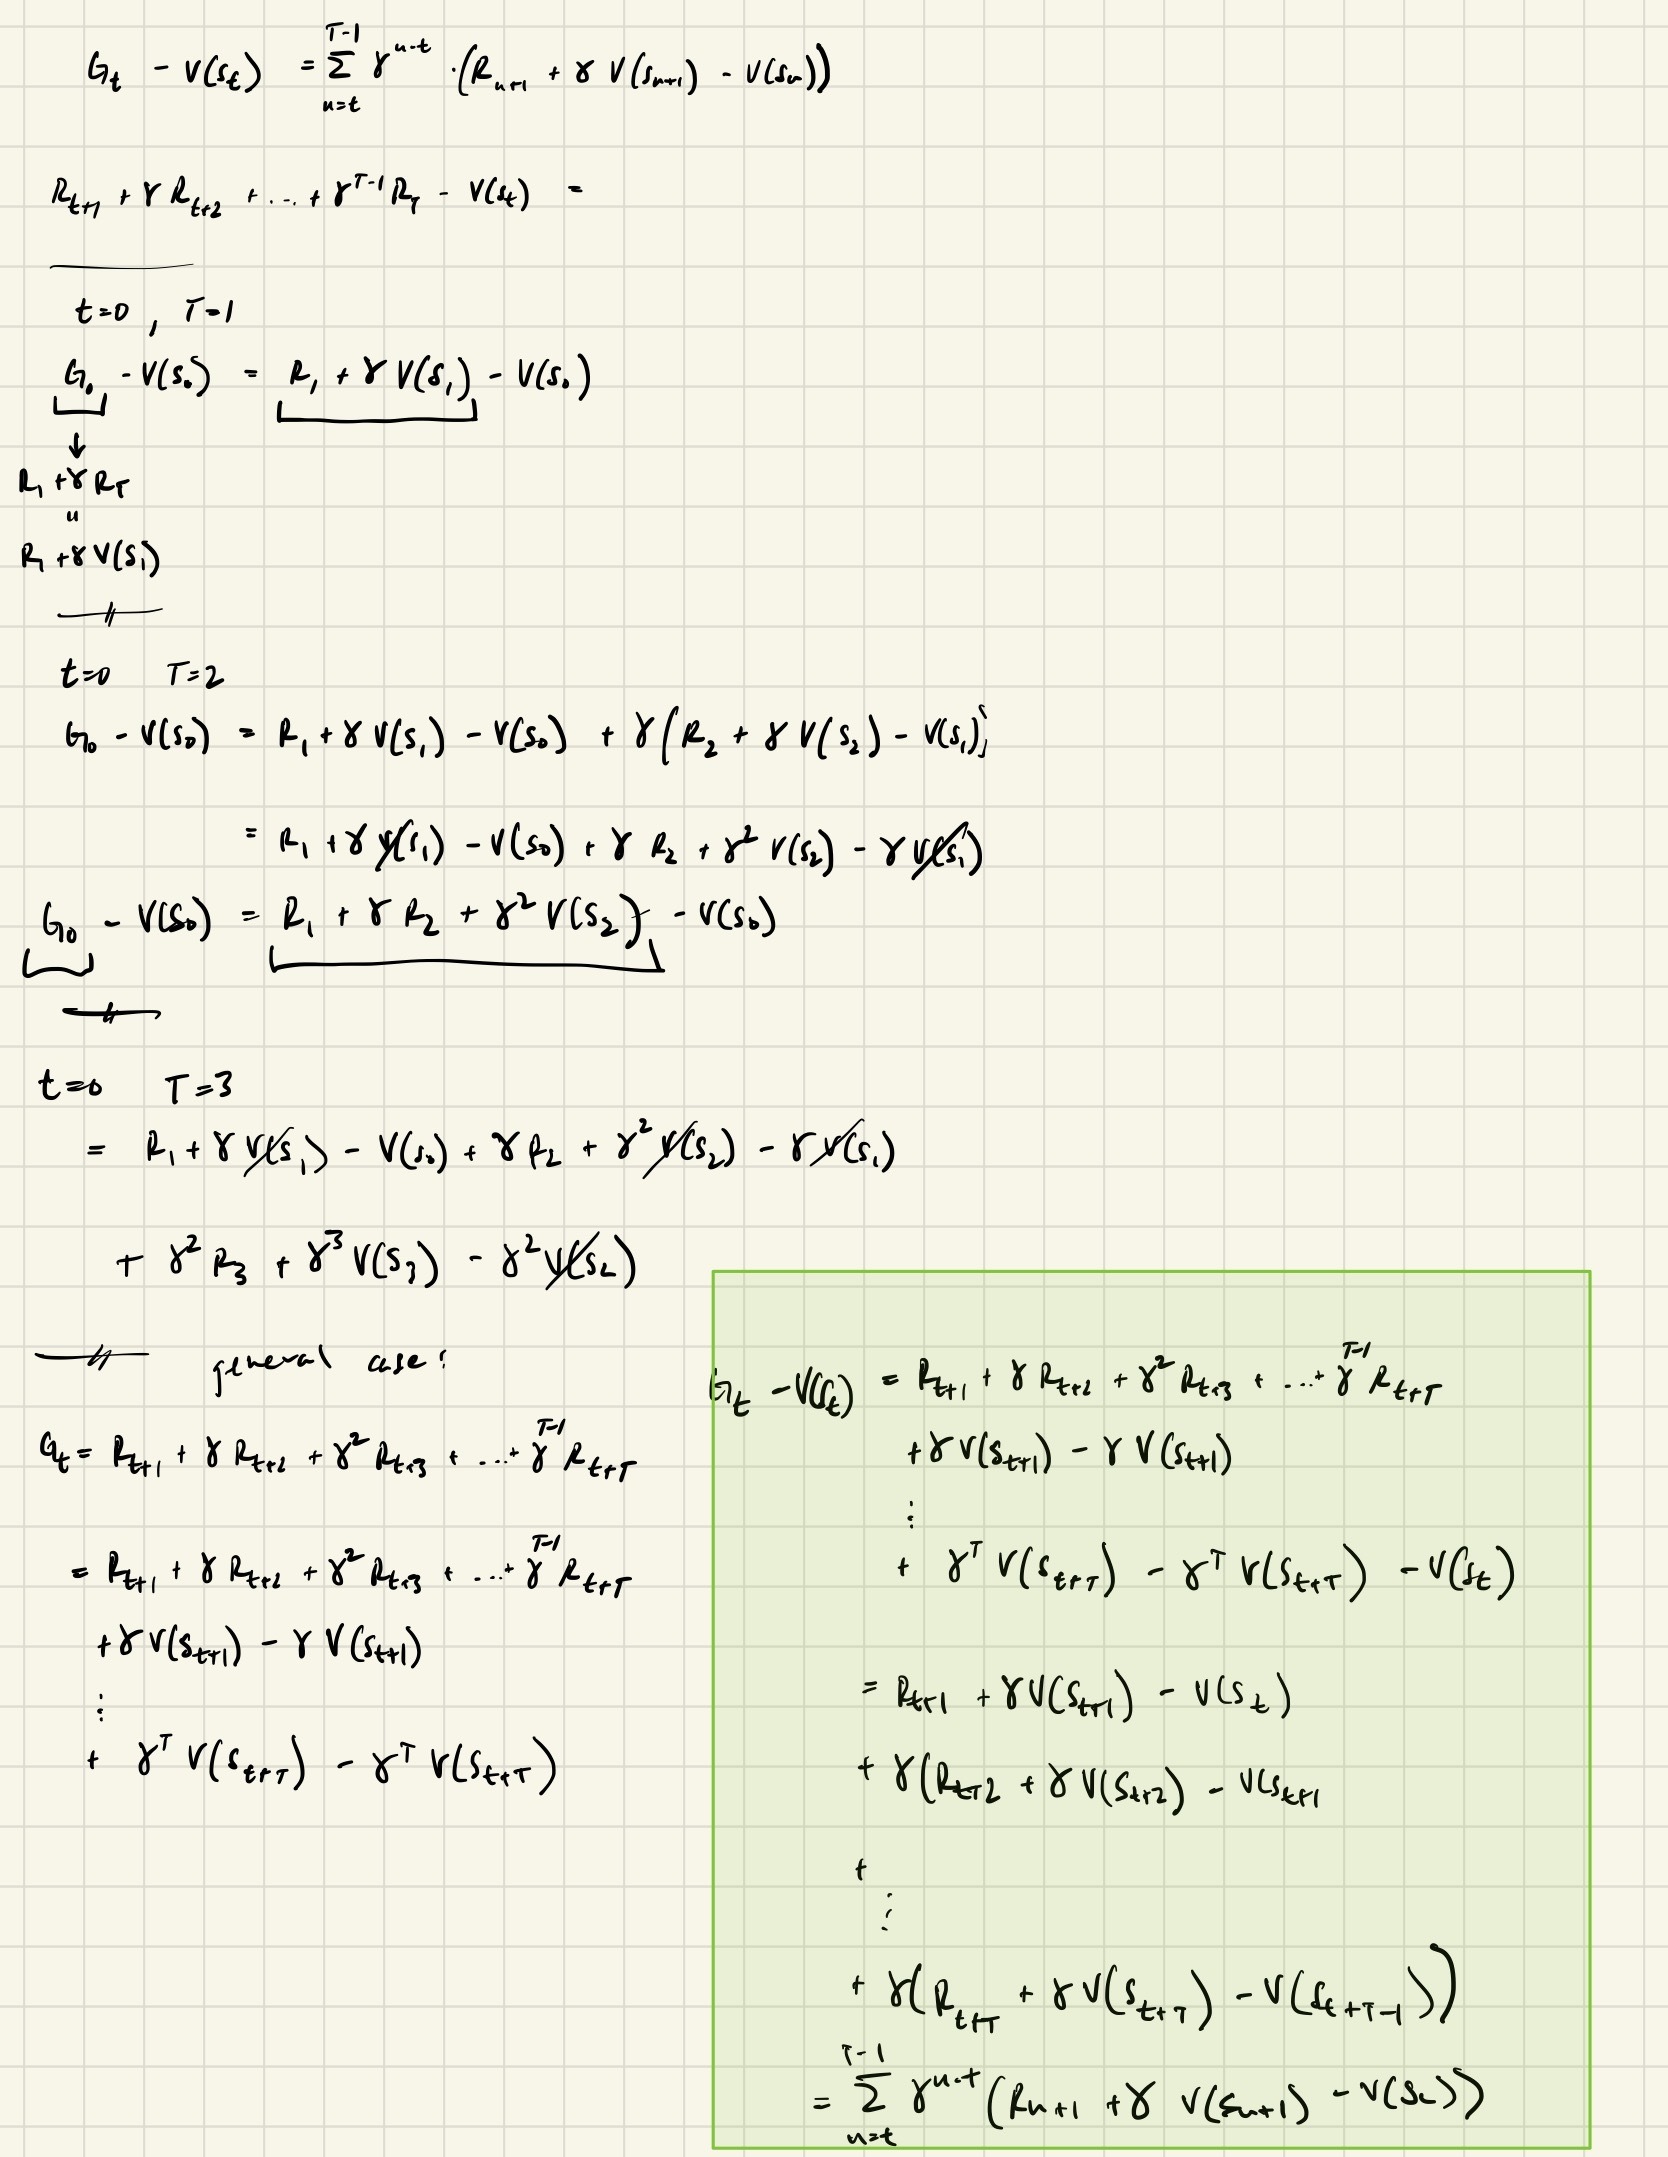 G_t - V(s_t) = \sum_{u=t}^{T-1} γ^{u-t} · (R_{u+1} + γ V(s_{u+1}) - V(s_u))
R_{t+1} + γ R_{t+2} + .... + γ^{T-1} R_T - V(s_t) =
t=0 , T=1
G_0 - V(s_0) = R_1 + γ V(s_1) - V(s_0)
↓
R_1 + γ R_T
"
R_1 + γ V(s_1)
t=0 T=2
G_0 - V(s_0) = R_1 + γ V(s_1) - V(s_0) + γ(R_2 + γ V(s_2) - V(s_1))
= R_1 + γ V(s_1) - V(s_0) + γ R_2 + γ^2 V(s_2) - γ V(s_1)
G_0 - V(s_0) = R_1 + γ R_2 + γ^2 V(s_2) - V(s_0)
t=0 T=3
= R_1 + γ V(s_1) - V(s_0) + γ R_2 + γ^2 V(s_2) - γ V(s_1)
+ γ^2 R_3 + γ^3 V(s_3) - γ^2 V(s_2)
general case:
G_t = R_{t+1} + γ R_{t+2} + γ^2 R_{t+3} + ...+ γ^{T-1} R_{t+T}
= R_{t+1} + γ R_{t+2} + γ^2 R_{t+3} + ...+ γ^{T-1} R_{t+T}
+ γ V(s_{t+1}) - γ V(s_{t+1})
⋮
+ γ^T V(s_{t+T}) - γ^T V(s_{t+T})
G_t - V(s_t) = R_{t+1} + γ R_{t+2} + γ^2 R_{t+3} + ...+ γ^{T-1} R_{t+T}
+ γ V(s_{t+1}) - γ V(s_{t+1})
⋮
+ γ^T V(s_{t+T}) - γ^T V(s_{t+T}) - V(s_t)
= R_{t+1} + γ V(s_{t+1}) - V(s_t)
+ γ(R_{t+2} + γ V(s_{t+2}) - V(s_{t+1}
+
⋮
+ γ(R_{t+T} + γ V(s_{t+T}) - V(s_{t+T-1}))
= \sum_{u=t}^{T-1} γ^{u-t} (R_{u+1} + γ V(s_{u+1}) - V(s_u))